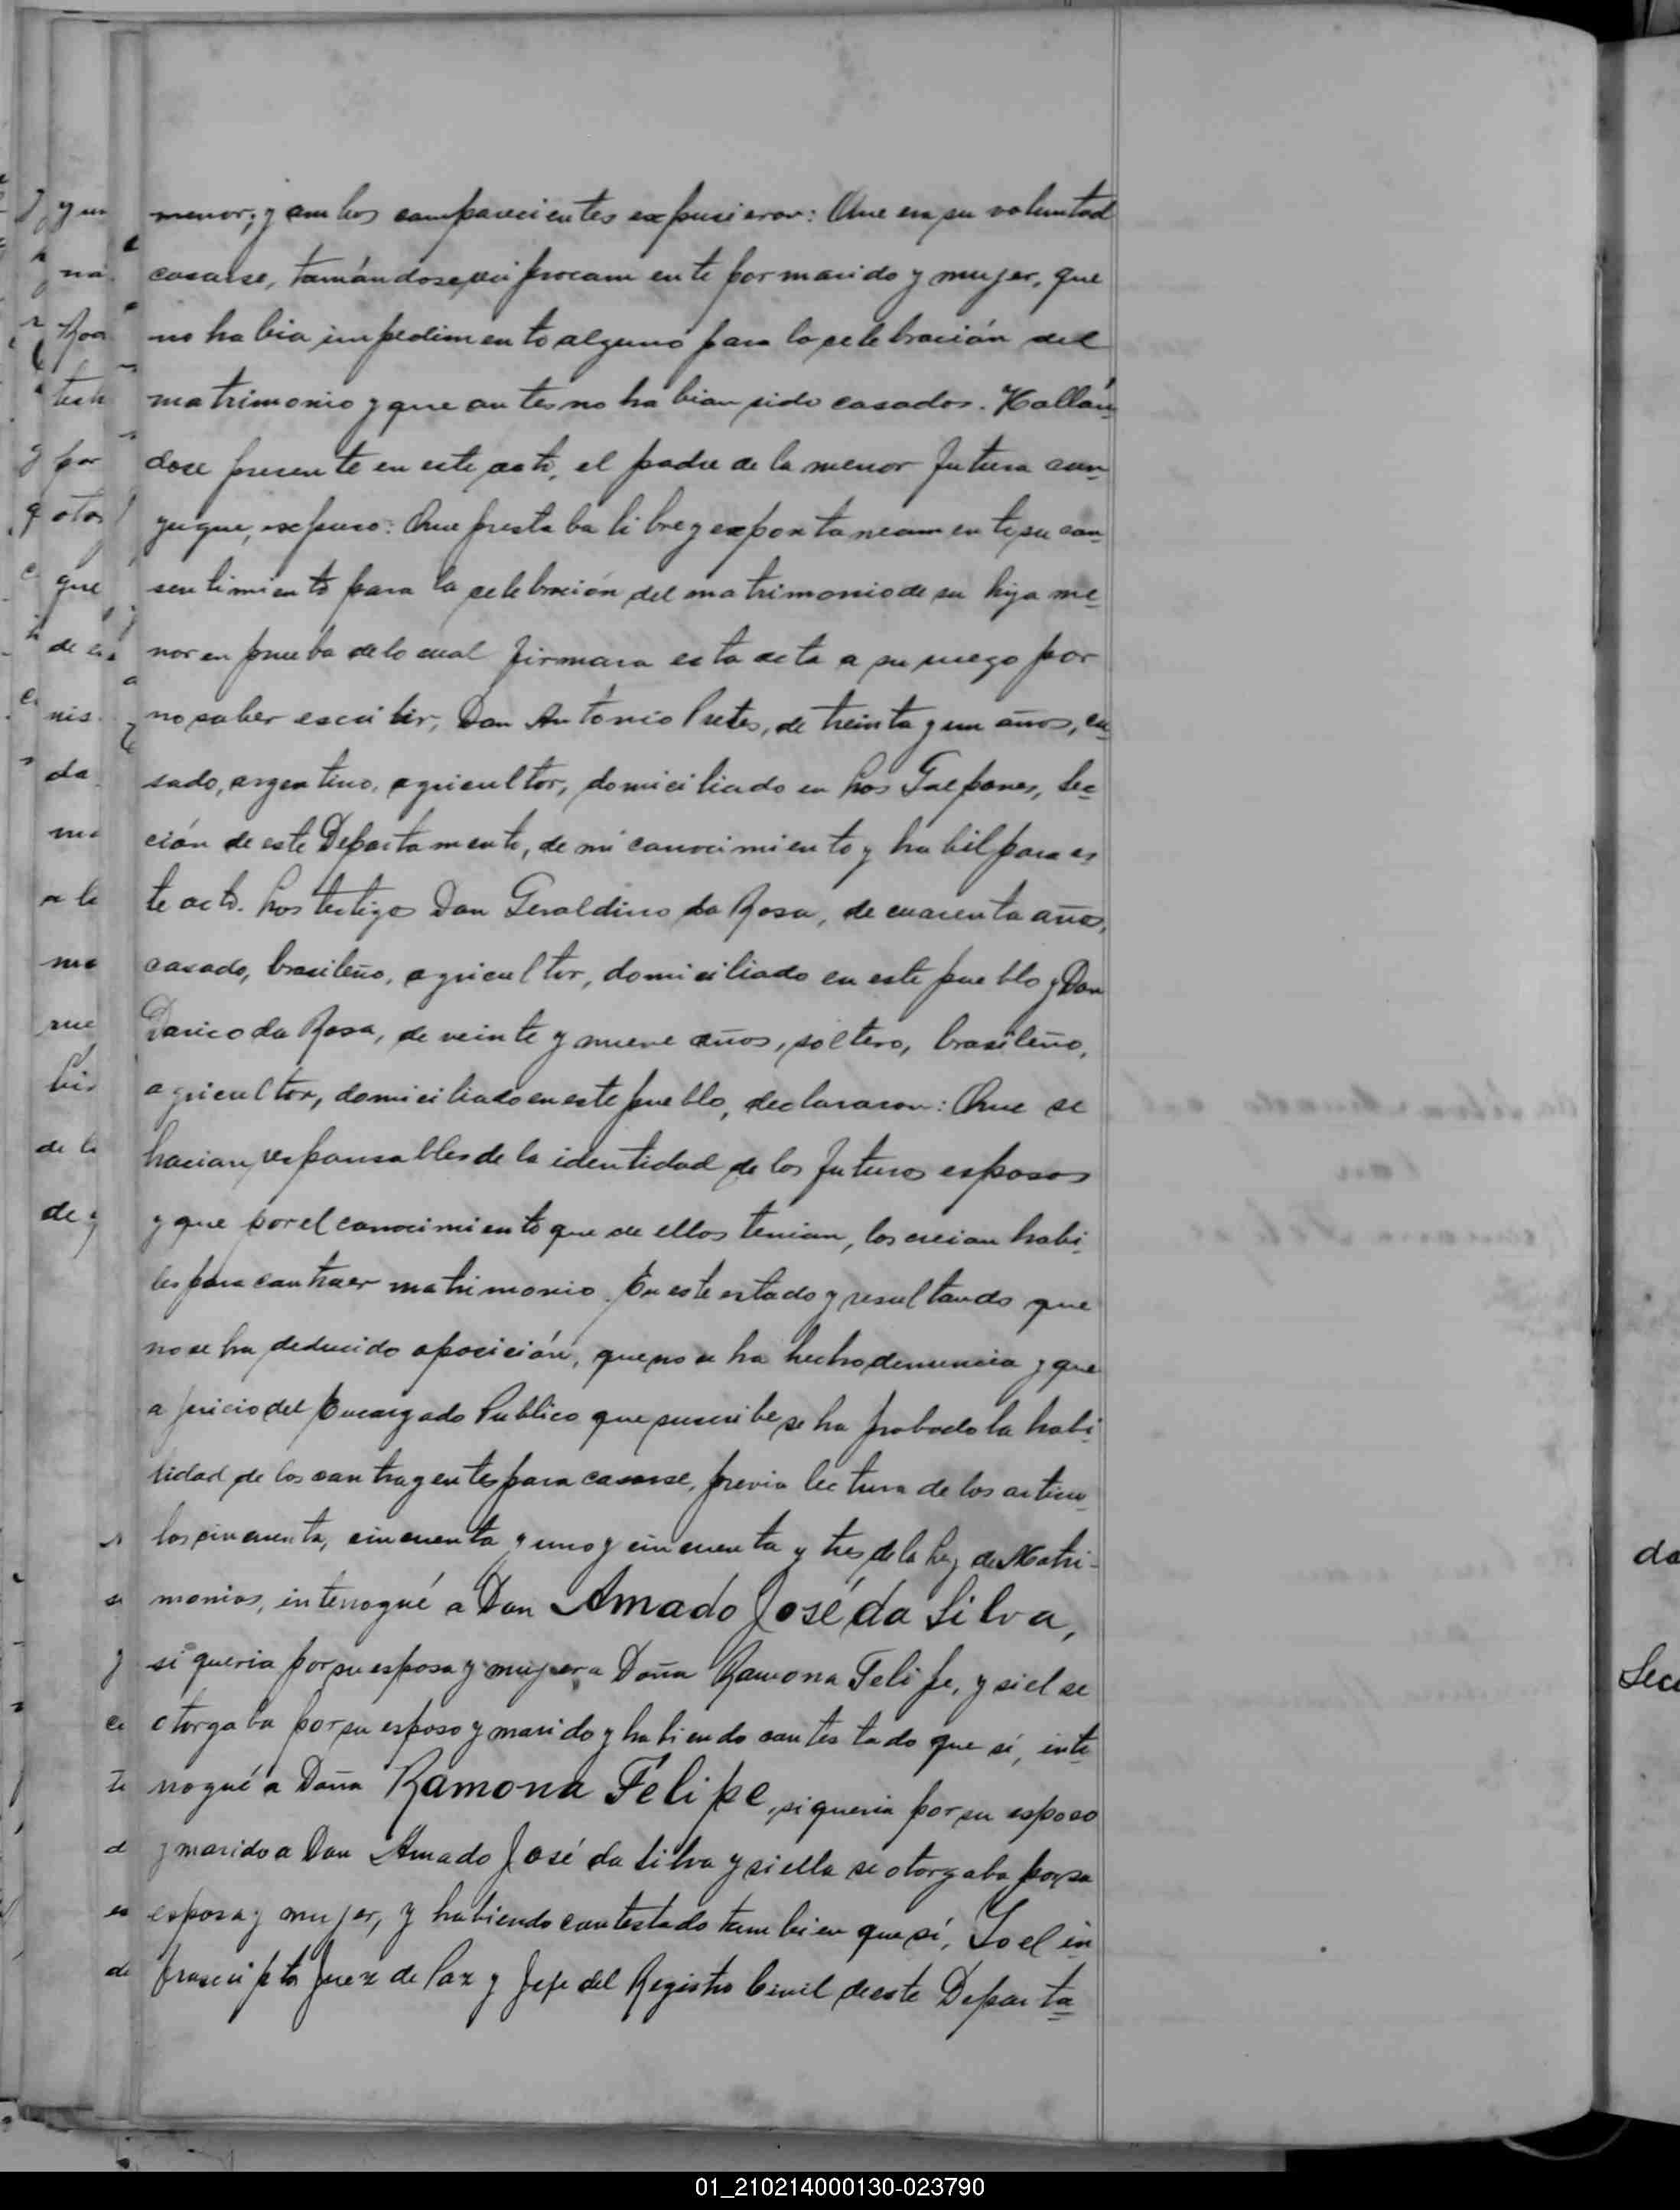 menor; y ambos comparecientes expusieron: Que era su voluntad
casarse, tomándose reciprocamente por marido y mujer, que
no habia impedimento alguno para la celebración del
matrimonio y que antes no habian sido casados. Hallán
dose presente en este acto, el padre de la menor futura con
yugue, expuso: Que prestaba libre y expontaneamente su con
sentimiento para la celebración del matrimonio de su hija me
nor en prueba de lo cual firmara esta acta a su ruego por
no saber escribir, Don Antonio Pretes, de treinta y un años, ca
sado, argentino, agricultor, domiciliado en Los Galpones, Sec
ción de este Departamento, de mi conocimiento y habil para es
te acto. Los testigos Don Geraldino da Rosa, de cuarenta años,
casado, brasileño, agricultor, domiciliado en este pueblo y Don
Darico da Rosa, de veinte y nueve años, soltero, brasileño,
agricultor, domiciliado en este pueblo, declararon: Que se
hacian responsables de la identidad de los futuros esposos
y que por el conocimiento que de ellos tenian, los creian habi
les para contraer matrimonio. En este estado y resultando que
no se ha deducido oposición, que no se ha hecho denuncia y que
a juicio del Encargado Publico que suscribe se ha probado la habi
lidad de los contrayentes para casarse, previa lectura de los articu
los cincuenta, cincuenta y uno y cincuenta y tres de la Ley de Matri-
monios, interrogué a Don Amado José da Silva,
si queria por su esposa y mujer a Doña Ramona Felipe, y si el se
otorgaba por su esposo y marido y habiendo contestado que sí, inte
rrogué a Doña Ramona Felipe, si queria por su esposo
y marido a Don Amado José da Silva y si ella se otorgaba por su
esposa y mujer, y habiendo contestado tambien que sí, Yo el in
frascripto Juez de Paz y Jefe del Registro Civil de este Departa
01_210214000130-023790